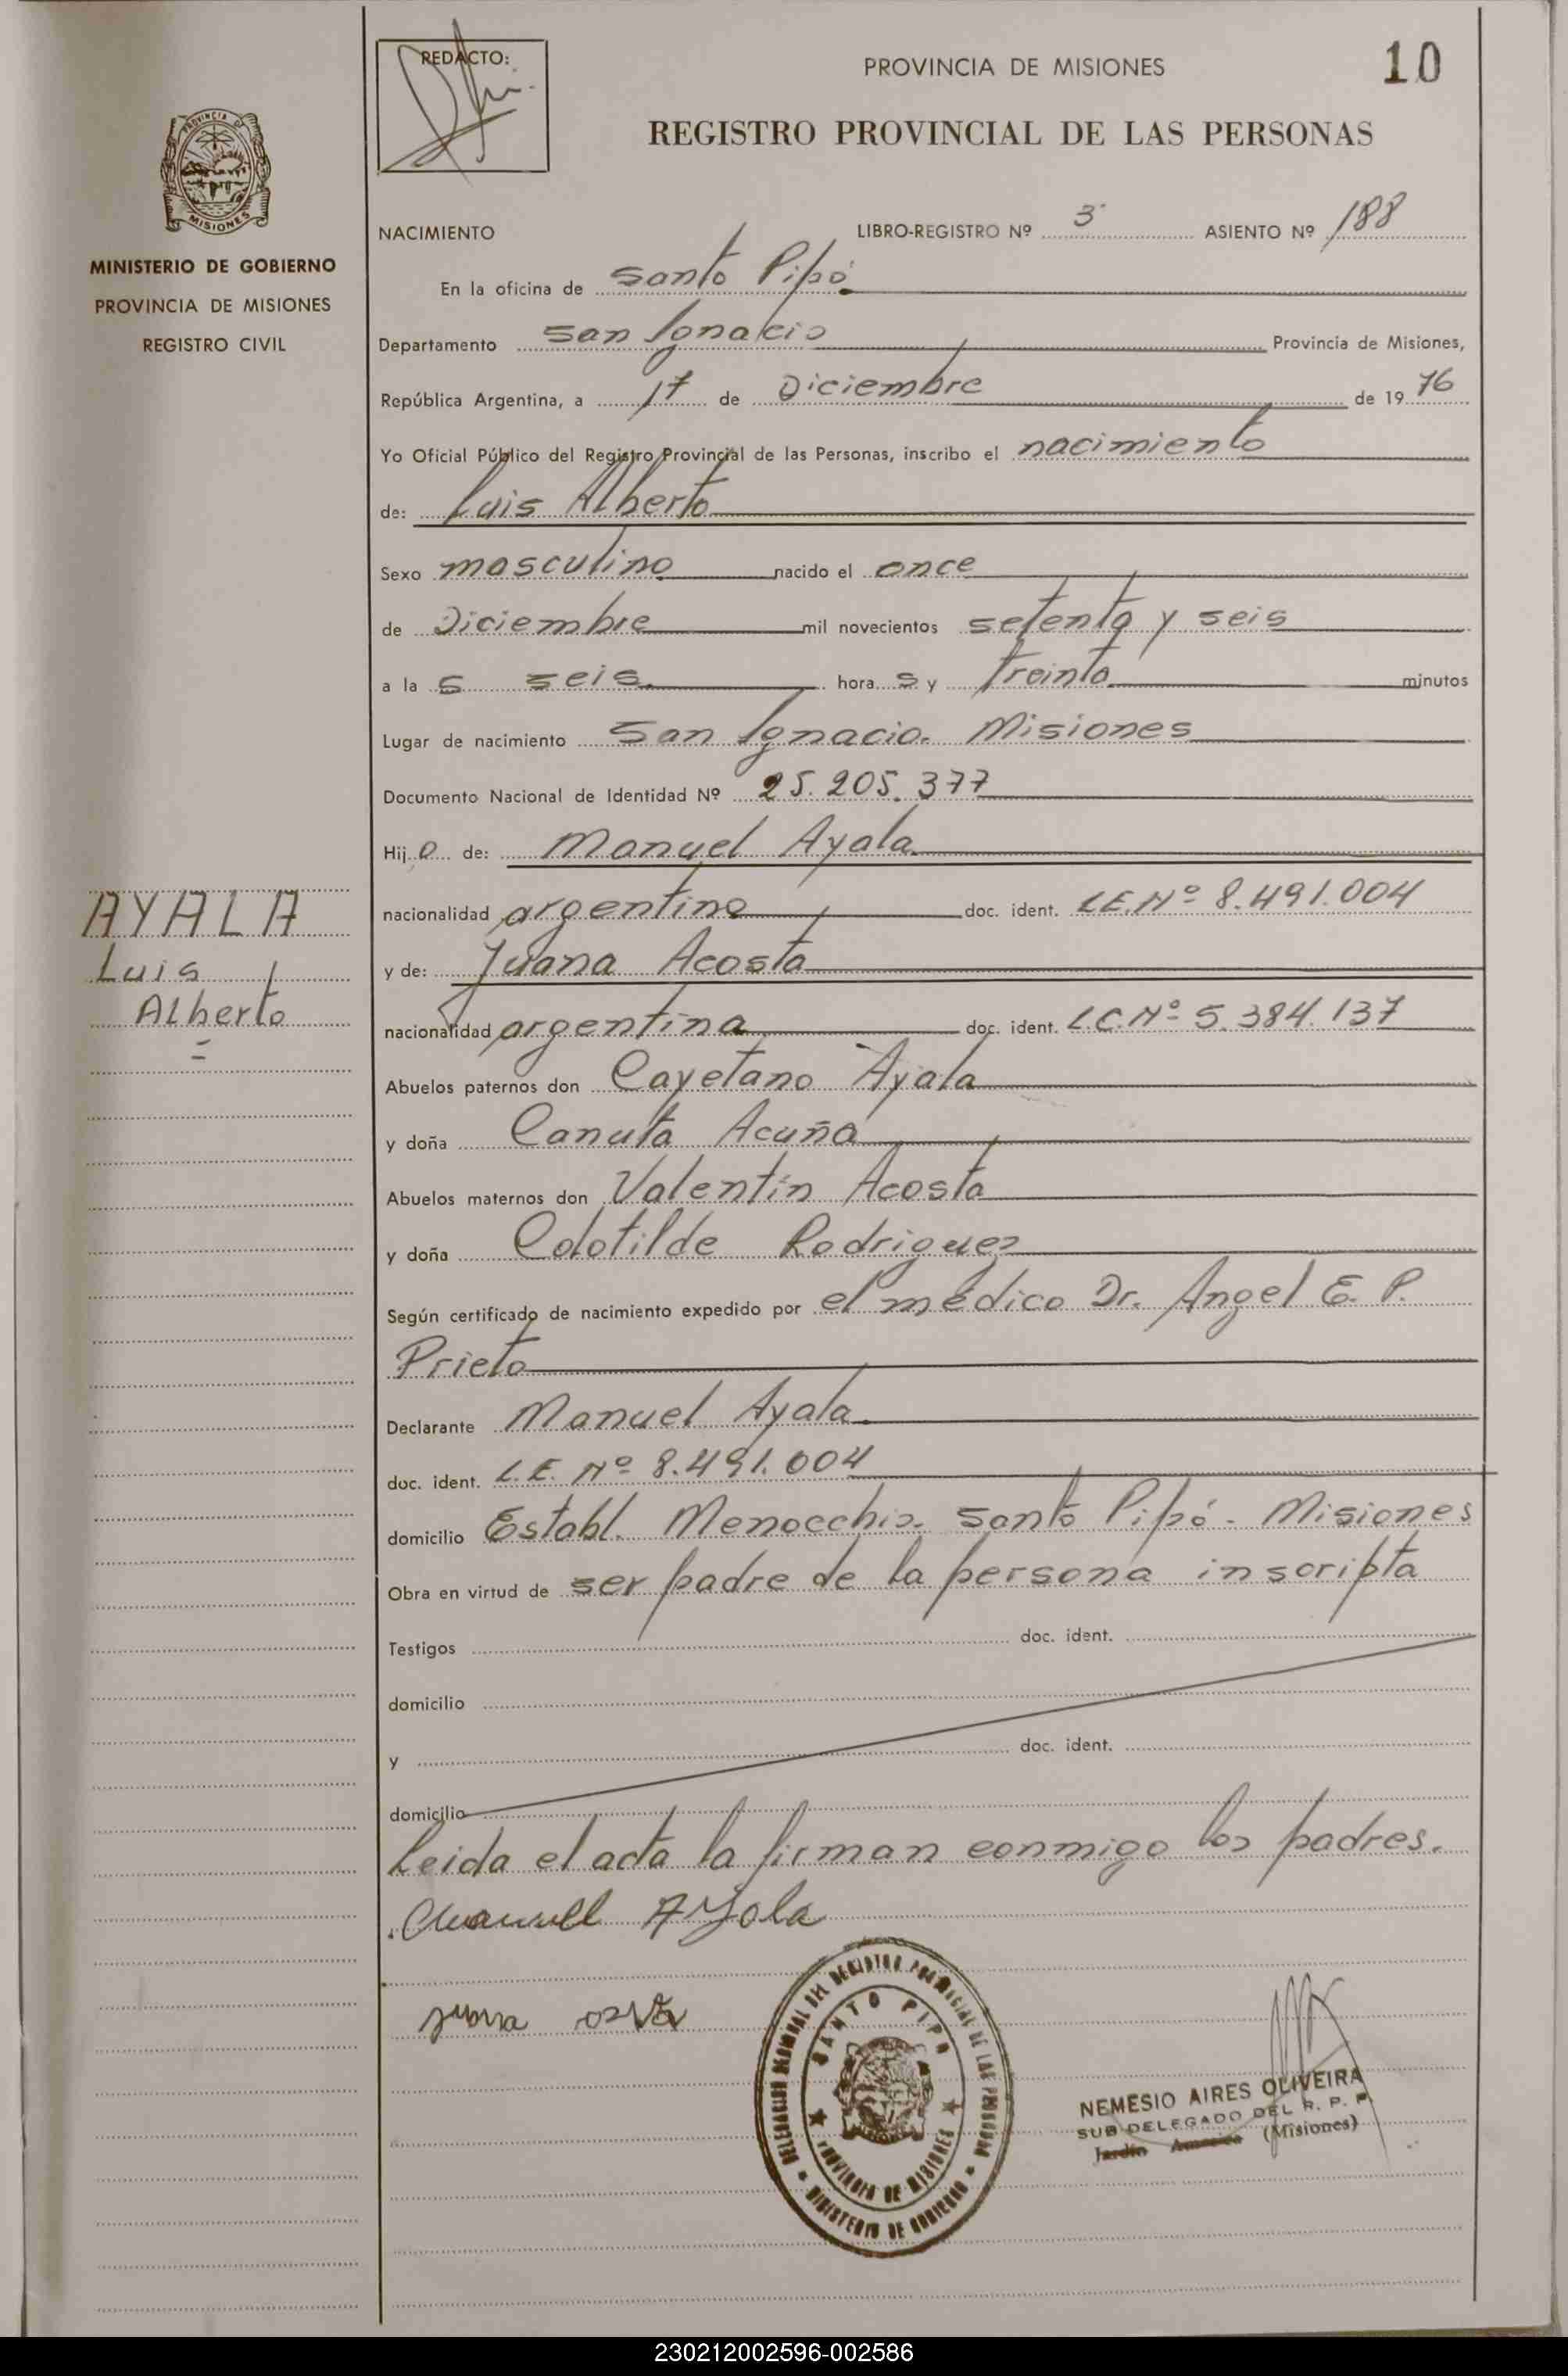 REDACTO:
PROVINCIA DE MISIONES
10
REGISTRO PROVINCIAL DE LAS PERSONAS
PROVINCIA D
MISIONES
MINISTERIO DE GOBIERNO
PROVINCIA DE MISIONES
REGISTRO CIVIL
NACIMIENTO LIBRO-REGISTRO Nº 3 ASIENTO Nº 188
En la oficina de Santo Pipó
Departamento San Ignacio Provincia de Misiones,
República Argentina, a 17 de Diciembre de 19 76
Yo Oficial Público del Registro Provincial de las Personas, inscribo el nacimiento
de: Luis Alberto
Sexo masculino nacido el once
de Diciembre mil novecientos setenta y seis
a la s seis hora s y treinta minutos
Lugar de nacimiento San Ignacio. Misiones
Documento Nacional de Identidad Nº 25.205.377
Hij o de: Manuel Ayala
AYALA
Luis
Alberto
=
nacionalidad argentina doc. ident. L.E. Nº 8.491.004
y de: Juana Acosta
nacionalidad argentina doc. ident. L.C. Nº 5.384.137
Abuelos paternos don Cayetano Ayala
y doña Canuta Acuña
Abuelos maternos don Valentín Acosta
y doña Colotilde Rodriguez
Según certificado de nacimiento expedido por el médico Dr. Angel E. P.
Prieto
Declarante Manuel Ayala
doc. ident. L.E. Nº 8.491.004
domicilio Establ. Menocchio. Santo Pipó - Misiones
Obra en virtud de ser padre de la persona inscripta
Testigos doc. ident.
domicilio
y doc. ident.
domicilio
Leida el acta la firman conmigo los padres.
Manuell Ayola
juana
DELEGACION SECCIONAL DEL REGISTRO PROVINCIAL DE LAS PERSONAS
SANTO PIPO
PROVINCIA DE MISIONES
MINISTERIO DE GOBIERNO
NEMESIO AIRES OLIVEIRA
SUB DELEGADO DEL R. P. P.
Jardin America (Misiones)
230212002596-002586